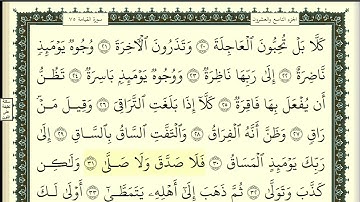 الجزء التاسع والعشرون سورة القيامة ٧٥
كَلَّا بَلْ تُحِبُّونَ ٱلْعَاجِلَةَ ٢٠ وَتَذَرُونَ ٱلْأَخِرَةَ ٢١ وُجُوهٌ يَوْمَئِذٍ
نَّاضِرَةٌ ٢٢ إِلَىٰ رَبِّهَا نَاظِرَةٌ ٢٣ وَوُجُوهٌ يَوْمَئِذٍ بَاسِرَةٌ ٢٤ تَظُنُّ
أَن يُفْعَلَ بِهَا فَاقِرَةٌ ٢٥ كَلَّا إِذَا بَلَغَتِ ٱلتَّرَاقِىَ ٢٦ وَقِيلَ مَنْ
رَاقٍ ٢٧ وَظَنَّ أَنَّهُ ٱلْفِرَاقُ ٢٨ وَٱلْتَفَّتِ ٱلسَّاقُ بِٱلسَّاقِ ٢٩ إِلَىٰ
رَبِّكَ يَوْمَئِذٍ ٱلْمَسَاقُ ٣٠ فَلَا صَدَّقَ وَلَا صَلَّىٰ ٣١ وَلَٰكِن
كَذَّبَ وَتَوَلَّىٰ ٣٢ ثُمَّ ذَهَبَ إِلَىٰ أَهْلِهِۦ يَتَمَطَّىٰٓ ٣٣ أَوْلَىٰ لَكَ